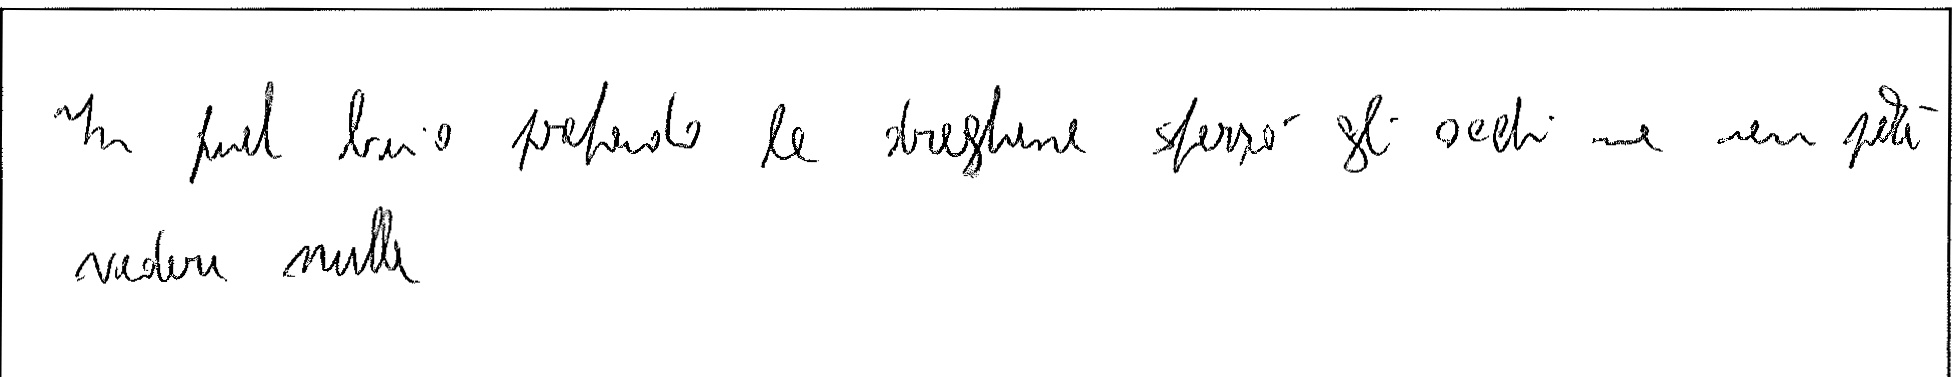 In quel buio profondo la streghina sforzò gli occhi ma non poté
vedere nulla